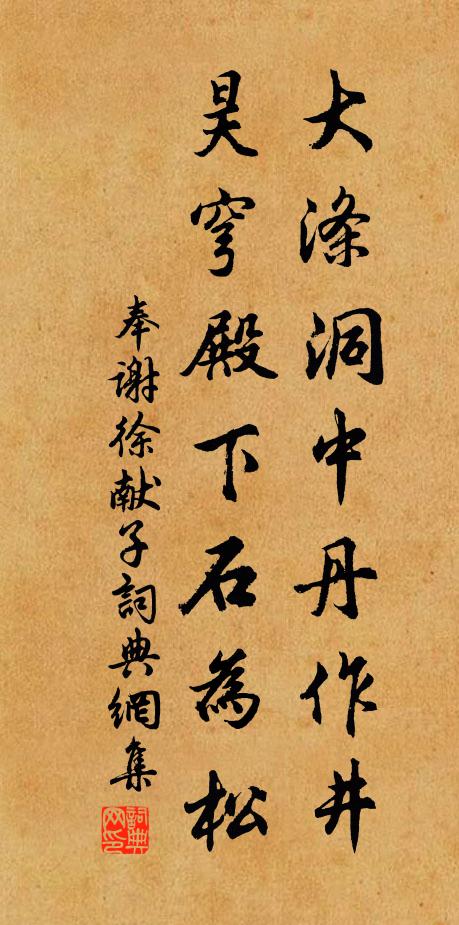 大滌洞中丹作井
昊穹殿下石為松
奉謝徐献子詞典網集
詞典网印